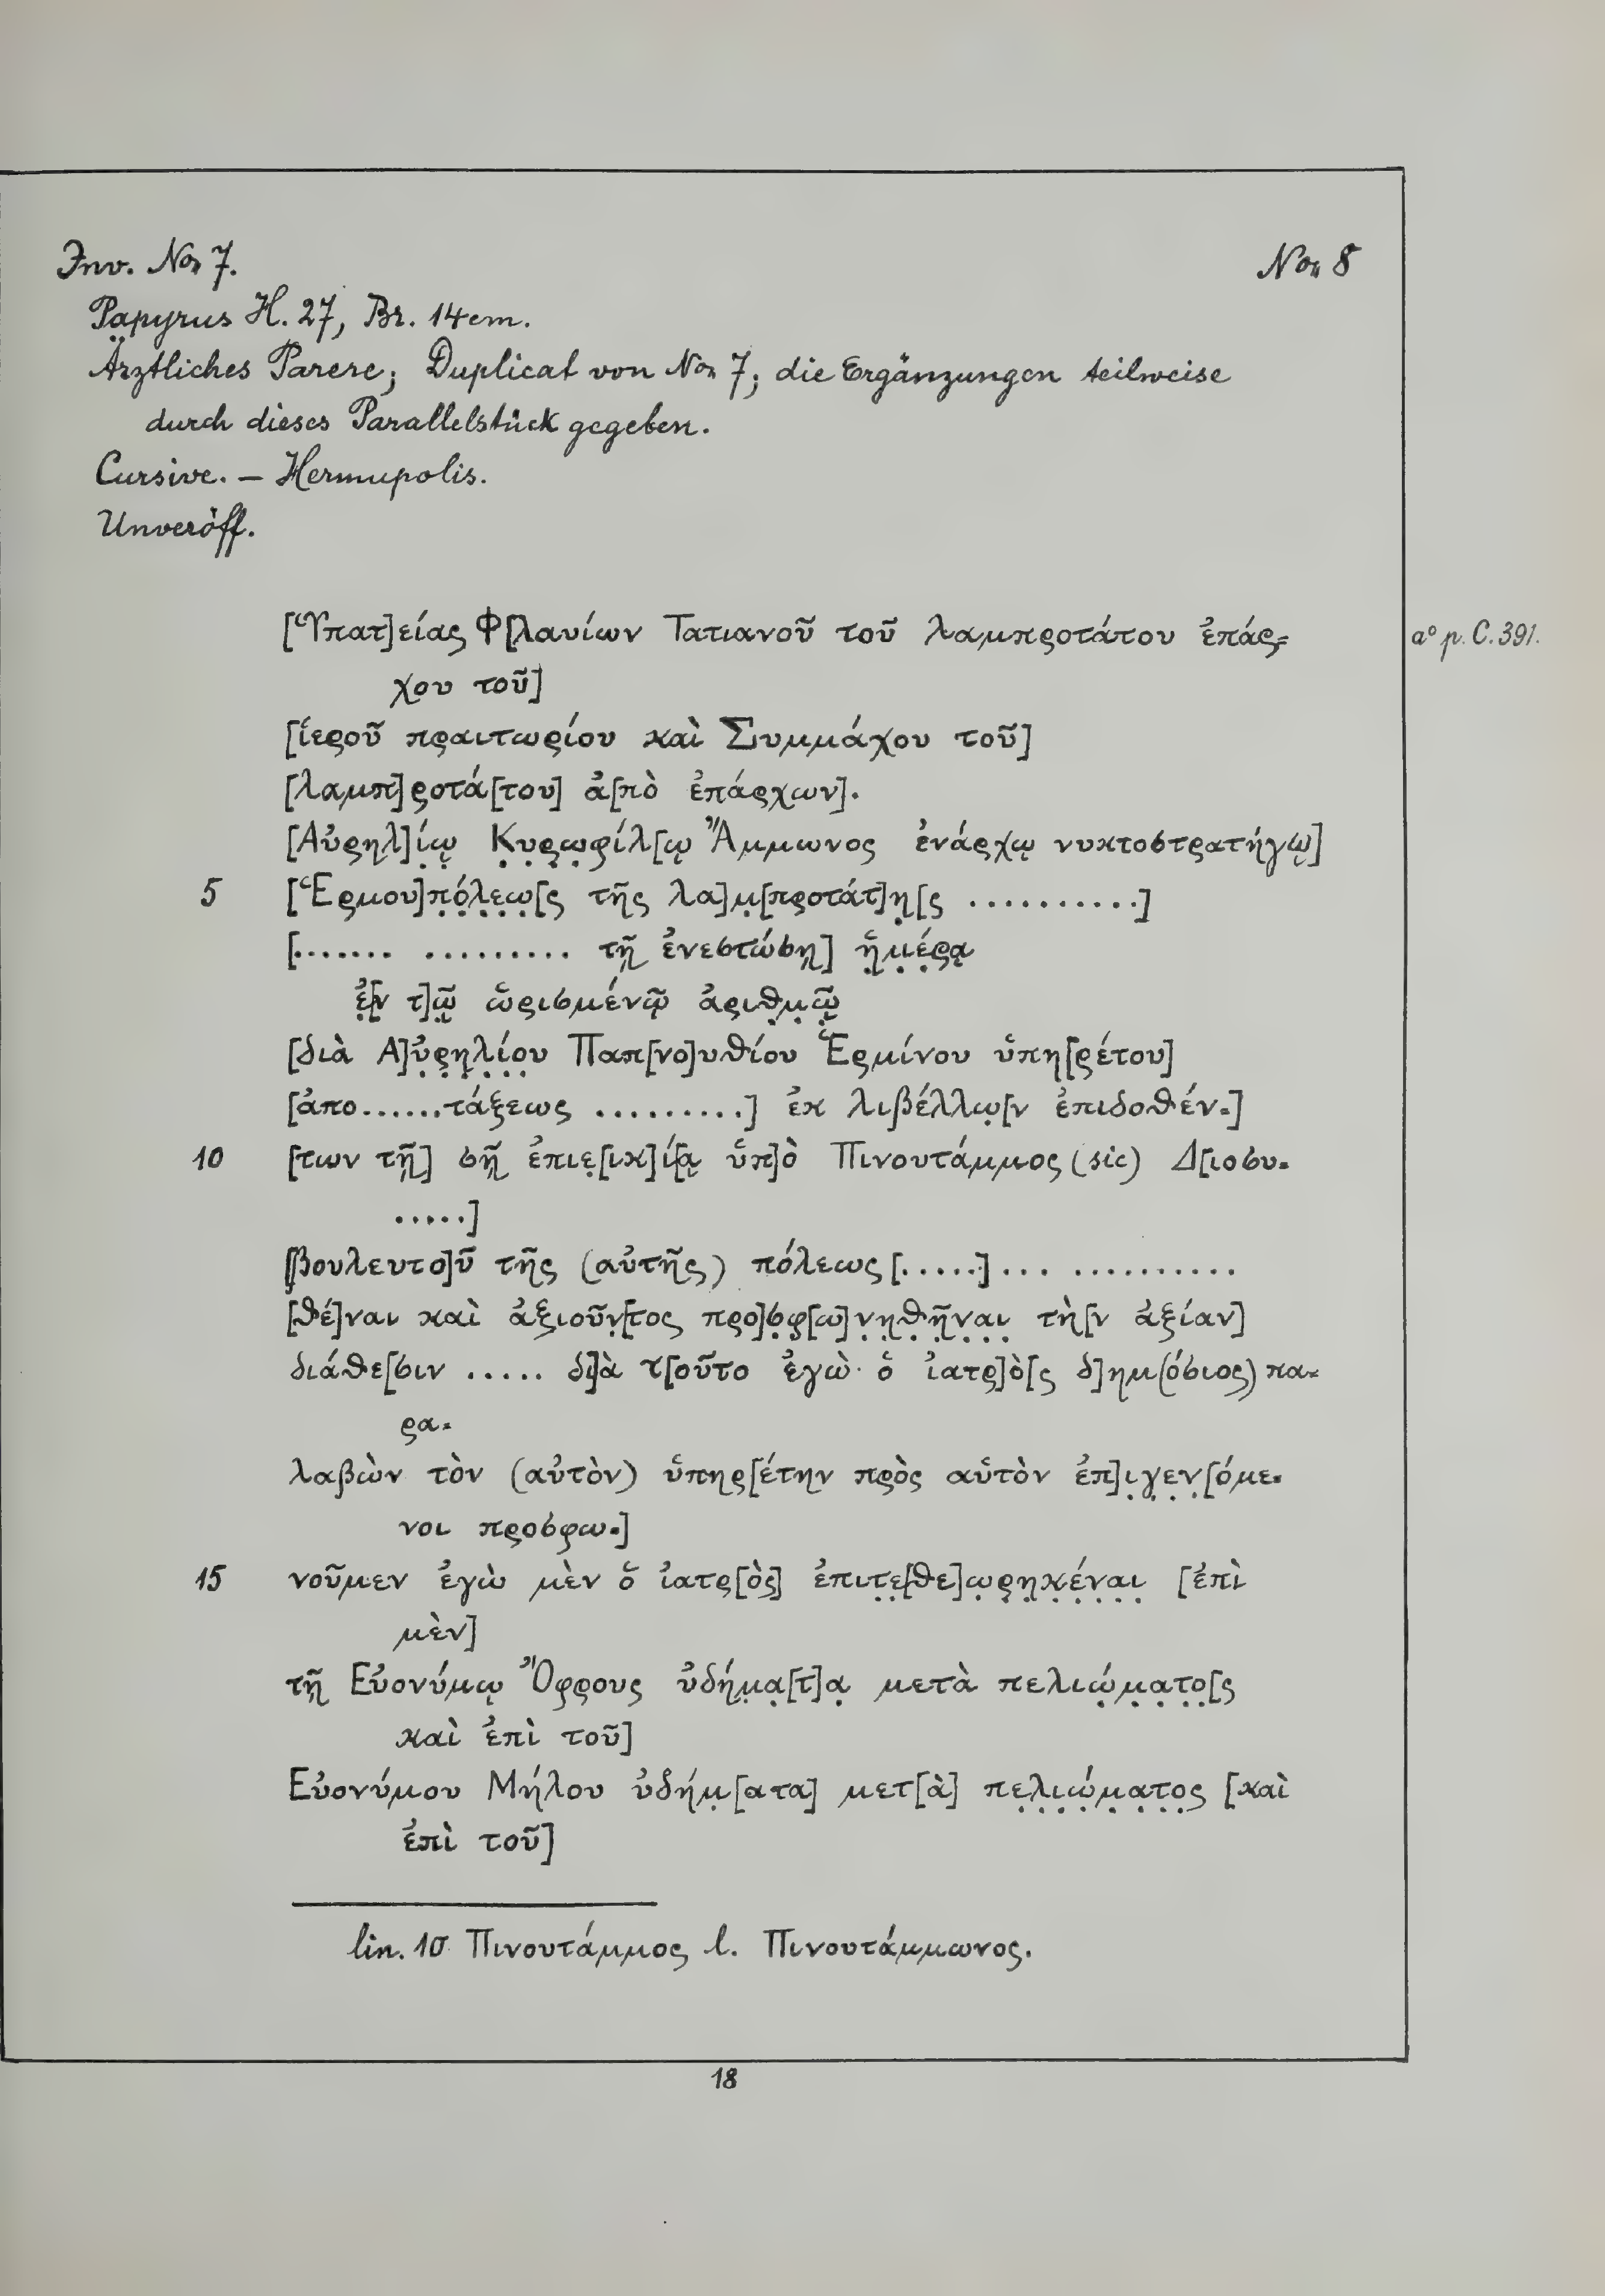 Inv. No. 7. No. 8
Papyrus H. 27, Br. 14 cm.
Ärztliches Parere; Duplicat von No. 7; die Ergänzungen teilweise
durch dieses Parallelstück gegeben.
Cursive. – Hermupolis.
Unveröff.
[Ὑπατ]είας Φ[λαυίων Τατιανοῦ τοῦ λαμπροτάτου ἐπάρ- a° p. C. 391.
χου τοῦ]
[ἱεροῦ πραιτωρίου καὶ Συμμάχου τοῦ]
[λαμπ]ροτά[του] ἀ[πὸ ἐπάρχων].
[Αὐρηλ]ί̣ῳ̣ Κ̣υ̣ρ̣ω̣φίλ[ῳ Ἄμμωνος ἐνάρχῳ νυκτοστρατήγῳ]
5 [Ἑρμου]π̣ό̣λ̣ε̣ω̣[ς τῆς λα]μ̣[προτάτ]η̣[ς ..........]
[....... ......... τῇ ἐνεστώσῃ] ἡ̣μ̣έ̣ρ̣ᾳ
ἐ̣[ν τ]ῷ̣ ὡρισμένῳ ἀριθ̣μ̣ῷ̣
[διὰ Α]ὐ̣ρ̣η̣λ̣ί̣ο̣υ Παπ[νο]υθίου Ἑρμίνου ὑπη[ρέτου]
[ἀπο......τάξεως .........] ἐκ λιβέλλω̣[ν ἐπιδοθέν-]
10 [των τῇ] σῇ ἐπιε̣[ικ]ί[ᾳ ὑπ]ὸ Πινουτάμμος (sic) Δ[ιοσυ-
.....]
[βουλευτο]ῦ τῆς (αὐτῆς) πόλεως [.....]... ..........
[θέ]ναι καὶ ἀξιοῦν̣[τος προ]σ̣φ̣[ω]ν̣η̣θ̣ῆ̣ν̣α̣ι̣ τὴ[ν ἀξίαν]
διάθε[σιν ..... δι]ὰ τ[οῦτο ἐγὼ ὁ ἰατρ]ὸ[ς δ]ημ(όσιος) πα-
ρα-
λαβὼν τὸν (αὐτὸν) ὑπηρ[έτην πρὸς αὐτὸν ἐπ]ι̣γ̣ε̣ν̣[όμε-
νοι προσφω-]
15 νοῦμεν ἐγὼ μὲν ὁ ἰατρ[ὸς] ἐπιτ̣ε̣[θε]ω̣ρ̣η̣κ̣έ̣ν̣α̣ι̣ [ἐπὶ
μὲν]
τῇ Εὐονύμῳ Ὄφρους ὑδήμ̣α̣[τ]α̣ μετὰ πελιώ̣μ̣α̣τ̣ο̣[ς
καὶ ἐπὶ τοῦ]
Εὐονύμου Μήλου ὑδήμ̣[ατα] μετ[ὰ] πε̣λ̣ι̣ώ̣μ̣α̣τ̣ο̣ς [καὶ
ἐπὶ τοῦ]
lin. 10 Πινουτάμμος l. Πινουτάμμωνος.
18